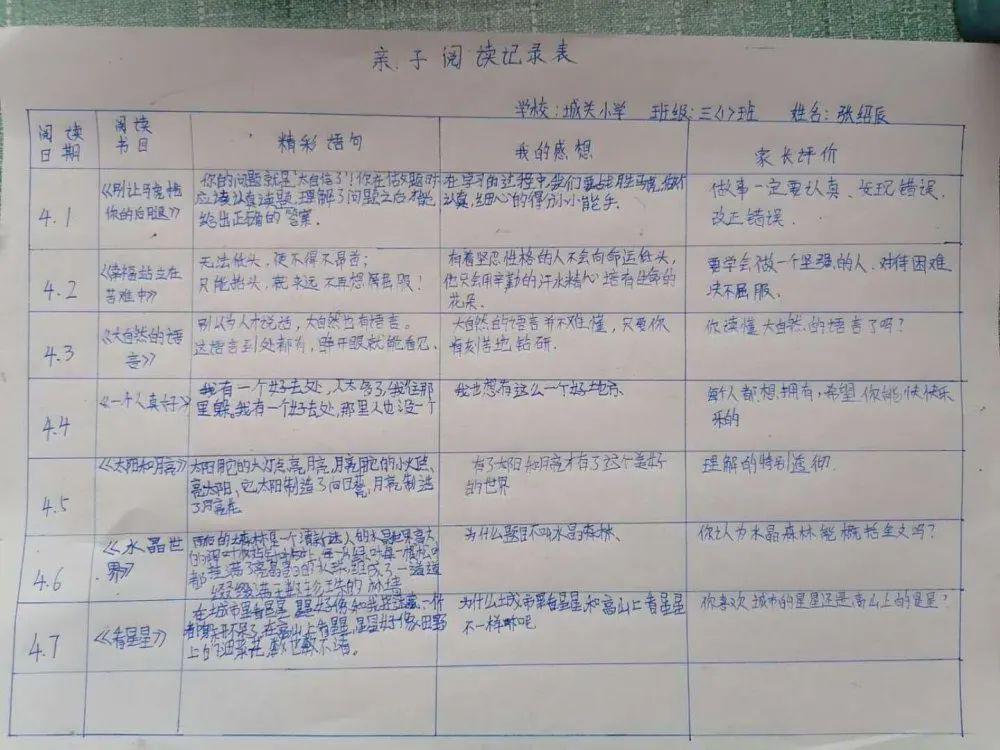 亲子阅读记录表
学校:城关小学 班级:三〈1〉班 姓名:张绍辰
阅读日期
阅读书目
精彩语句
我的感想
家长评价
4.1
《别让马虎拖
你的后腿》
你的问题就是"太自信了"!你在做题时
应该认真读题,理解了问题之后才能
给出正确的答案.
在学习的过程中,我们要战胜马虎,做个
认真,细心的得分小能手.
做事一定要认真、发现错误,
改正错误.
4.2
《幸福站立在
苦难中》
无法低头,便不得不昂首;
只能抬头,就永远不再想屈服!
有着坚忍性格的人不会向命运低头,
他只会用辛勤的汗水精心培育生命的
花朵.
要学会做一个坚强的人.对待困难
决不屈服.
4.3
《大自然的语
言》
别以为人才说话,大自然也有语言。
这语言到处都有,睁开眼就能看见、
大自然的语言并不难懂,只要你
有刻苦地钻研.
你读懂大自然的语言了吗?
4.4
《一个人真好》
我有一个好去处,人太多了,我住那
里躲。我有一个好去处,那里人也没一个
我也想有这么一个好地方
每个人都想拥有,希望你能快快乐
乐的
4.5
《太阳和月亮》
太阳用它的大灯点亮月亮,月亮用它的小火点
亮太阳,它太阳制造了向日葵,月亮制造
了月亮花
有了太阳和月亮才有了这个美好
的世界
理解的特别透彻.
4.6
《水晶世
界》
雨后的森林是一个清新迷人的水晶世界高大
都挂满了亮晶晶的水珠,组成了一道道
缀满珍珠的
为什么题目不叫水晶森林、
你认为水晶森林能概括全文吗?
4.7
《看星星》
在城市里看星星,星星好像
在高山上看星星,星星好像田野
上的野菜花,数也数不清。
为什么城市里看星星,和高山上看星星
不一样呢
你喜欢城市的星星还是高山上的星星?